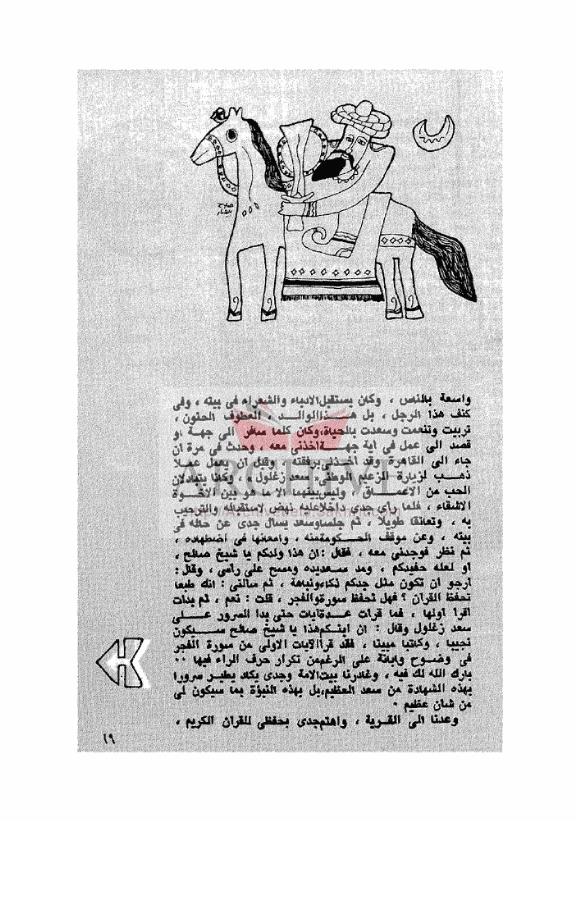 صلاح
واسعة بالنص ، وكان يستقبل الادباء والشعراء فى بيته ، وفى
كنف هذا الرجل ، بل هذا الوالد ، العطوف الحنون ،
تربيت وتنعمت وسعدت بالحياة، وكان كلما سافر الى جهة او
قصد الى عمل فى اية جهة اخذنى معه ، وحدث فى مرة ان
جاء الى القاهرة وقد اخذنى برفقته ، وقبل ان يعمل عملا
ذهب لزيارة الزعيم الوطنى، سعد زغلول ، وكانا يتبادلان
الحب من الاعماق ، وليس بينهما الا ما هو بين الاخوة
الاشقاء ، فلما راى جدى داخلا عليه نهض لاستقباله والترحيب
به ، وتعانقا طويلا ، ثم جلسا وسعد يسال جدى عن حاله فى
بيته ، وعن موقف الحكومة منه ، وامعانها فى اضطهاده ،
ثم نظر فوجدنى معه ، فقال : ان هذا ولدكم يا شيخ صالح ،
او لعله حفيدكم ، ومد سعد يده ومسح على راسى ، وقال :
ارجو ان تكون مثل جدكم ذكاء ونباهة ، ثم سالنى : انك طبعا
تحفظ القران ؟ فهل تحفظ سورة والفجر ، قلت : نعم ، ثم بدات
اقرا اولها ، فما قرات عدة ايات حتى بدا السرور على
سعد زغلول وقال : ان ابنكم هذا يا شيخ صالح سيكون
نجيبا ، وكاتبا مبينا ، فقد قرا الايات الاولى من سورة الفجر
فى وضوح وابانة على الرغم من تكرار حرف الراء فيها ٠٠
بارك الله لك فيه ، وغادرنا بيت الامة وجدى يكاد يطير سرورا
بهذه الشهادة من سعد العظيم، بل بهذه النبؤة بما سيكون لى
من شان عظيم ٠
وعدنا الى القرية ، واهتم جدى بحفظى للقران الكريم ،
١٩
ARCHIVE